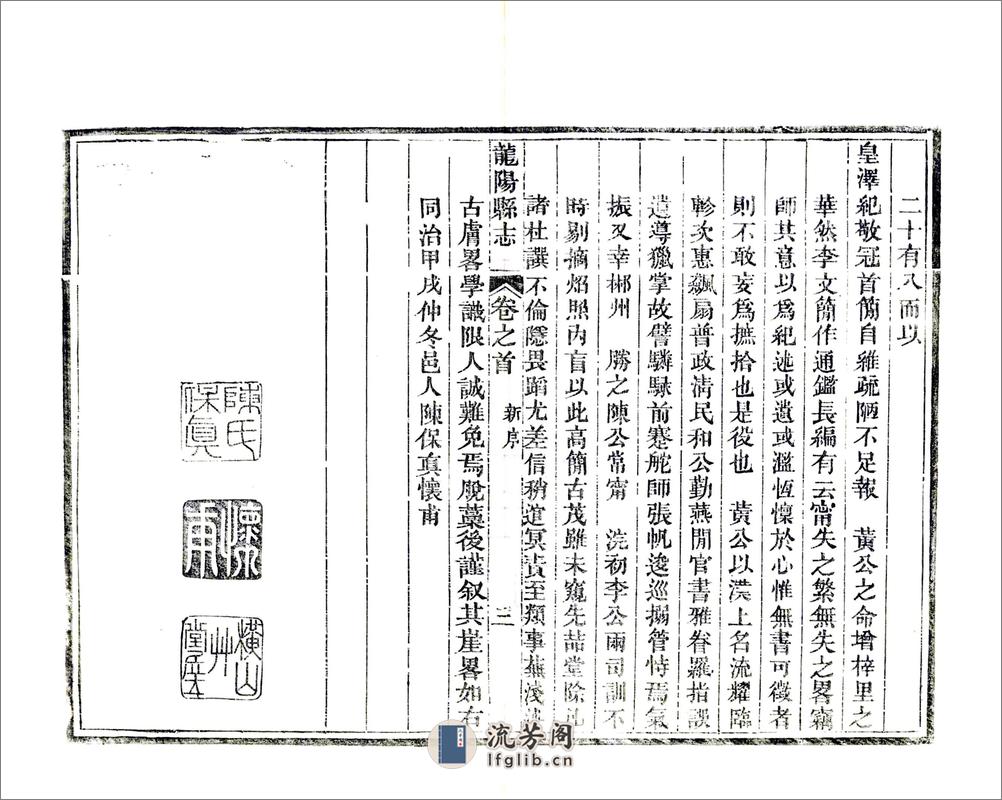 二十有八而以
皇澤紀敬冠首簡自維疏陋不足報　黃公之命增梓里之
華然李文簡作通鑑長編有云甯失之繁無失之畧竊
師其意以爲紀述或遺或濫恆懍於心惟無書可徵者
則不敢妄爲摭拾也是役也　黃公以漢上名流耀臨
軫次惠飆扇普政淸民和公勤燕閒官書雅眷羅指談
遺導獵掌故譬驥騄前蹇舵師張帆逡巡搦管恃焉氣
振又幸郴州　勝之陳公常甯　浣初李公兩司訓不
時剔摘焰照內盲以此高簡古茂雖未窺先喆堂除
諸杜譔不倫隱畏蹈尤差信稍逭冥責至類事蕪淺
古膚畧學識限人誠難免焉脫藁後謹叙其崖畧如右
同治甲戌仲冬邑人陳保真懷甫
龍陽縣志
卷之首
新序
三
陳氏保眞
懷甫
橫山草堂
流芳阁
lfglib.cn